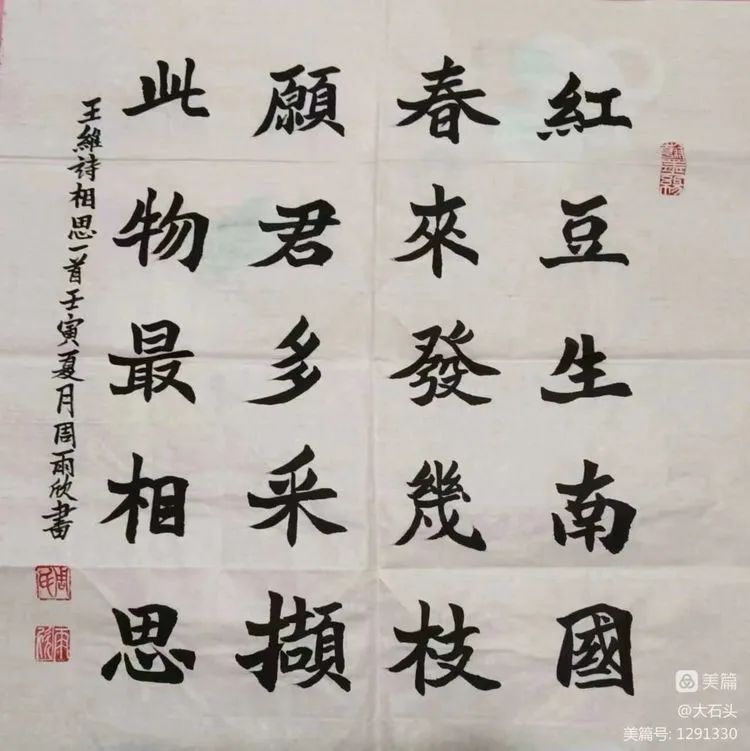 紅豆生南國
春來發幾枝
願君多采擷
此物最相思
王維詩相思一首壬寅夏月周雨欣書
美篇
@大石头
美篇号: 1291330